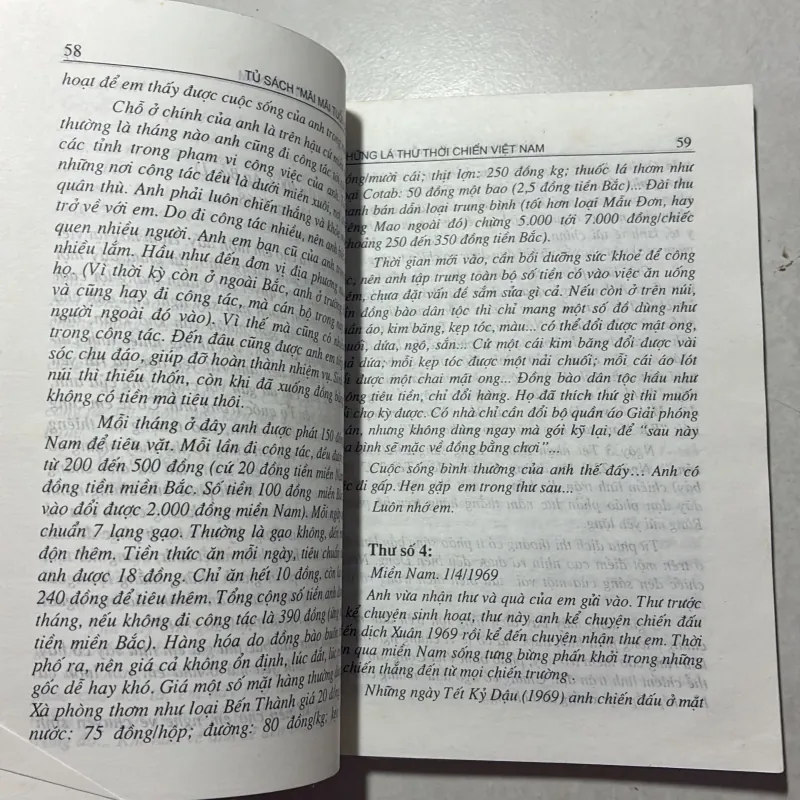 58
TỦ SÁCH "MÃI MÃI TUỔI
hoạt để em thấy được cuộc sống của anh trong
Chỗ ở chính của anh là trên hậu cứ
thường là tháng nào anh cũng đi công tác
các tỉnh trong phạm vi công việc của anh.
những nơi công tác đều là dưới miền xuôi,
quân thù. Anh phải luôn chiến thắng và
trở về với em. Do đi công tác nhiều, nên anh
quen nhiều người. Anh em bạn cũ của anh
nhiều lắm. Hầu như đến đơn vị địa phương
họ. (Vì thời kỳ còn ở ngoài Bắc, anh ở trường
và cũng hay đi công tác, mà cán bộ trong
người ngoài đó vào). Vì thế mà cũng có
trong công tác. Đến đâu cũng được anh em
sóc chu đáo, giúp đỡ hoàn thành nhiệm vụ.
núi thì thiếu thốn, còn khi đã xuống đồng
không có tiền mà tiêu thôi.
Mỗi tháng ở đây anh được phát 150
Nam để tiêu vặt. Mỗi lần đi công tác, đều được
từ 200 đến 500 đồng (cứ 20 đồng tiền miền
đồng tiền miền Bắc. Số tiền 100 đồng miền
vào đổi được 2.000 đồng miền Nam). Mỗi
chuẩn 7 lạng gạo. Thường là gạo không,
độn thêm. Tiền thức ăn mỗi ngày, tiêu chuẩn
anh được 18 đồng. Chỉ ăn hết 10 đồng, còn
240 đồng để tiêu thêm. Tổng cộng số tiền anh
tháng, nếu không đi công tác là 390 đồng
tiền miền Bắc). Hàng hóa do đồng bào buôn
phố ra, nên giá cả không ổn định, lúc đắt, lúc
gốc dễ hay khó. Giá một số mặt hàng thường
Xà phòng thơm như loại Bến Thành giá 20
nước: 75 đồng/hộp; đường: 80 đồng/kg;
NHỮNG LÁ THƯ THỜI CHIẾN VIỆT NAM
59
đồng/mười cái; thịt lợn: 250 đồng kg; thuốc lá thơm như
loại Cotab: 50 đồng một bao (2,5 đồng tiền Bắc)... Đài thu
thanh bán dẫn loại trung bình (tốt hơn loại Mẫu Đơn, hay
Mao ngoài đó) chừng 5.000 tới 7.000 đồng/chiếc
khoảng 250 đến 350 đồng tiền Bắc).
Thời gian mới vào, cần bồi dưỡng sức khoẻ để công
tác, nên anh tập trung toàn bộ số tiền có vào việc ăn uống
thêm, chưa đặt vấn đề sắm sửa gì cả. Nếu còn ở trên núi,
đồng bào dân tộc thì chỉ mang một số đồ dùng như
quần áo, kim băng, kẹp tóc, màu... có thể đổi được mật ong,
chuối, dứa, ngô, sắn... Cứ một cái kim băng đổi được vài
quả dứa; mỗi kẹp tóc được một nải chuối; mỗi cái áo lót
được một chai mật ong... Đồng bào dân tộc hầu như
không tiêu tiền, chỉ đổi hàng. Họ đã thích thứ gì thì muốn
đổi cho kỳ được. Có nhà chỉ cần đổi bộ quần áo Giải phóng
quân, nhưng không dùng ngay mà gói kỹ lại, để "sau này
hòa bình sẽ mặc về đồng bằng chơi"...
Cuộc sống bình thường của anh thế đấy... Anh có
việc đi gấp. Hẹn gặp em trong thư sau...
Luôn nhớ em.
Thư số 4:
Miền Nam. 1/4/1969
Anh vừa nhận thư và quà của em gửi vào. Thư trước
kể chuyện sinh hoạt, thư này anh kể chuyện chiến đấu
chiến dịch Xuân 1969 rồi kể đến chuyện nhận thư em. Thời
gian qua miền Nam sống tưng bừng phấn khởi trong những
chiến thắng đến từ mọi chiến trường.
Những ngày Tết Kỷ Dậu (1969) anh chiến đấu ở mặt